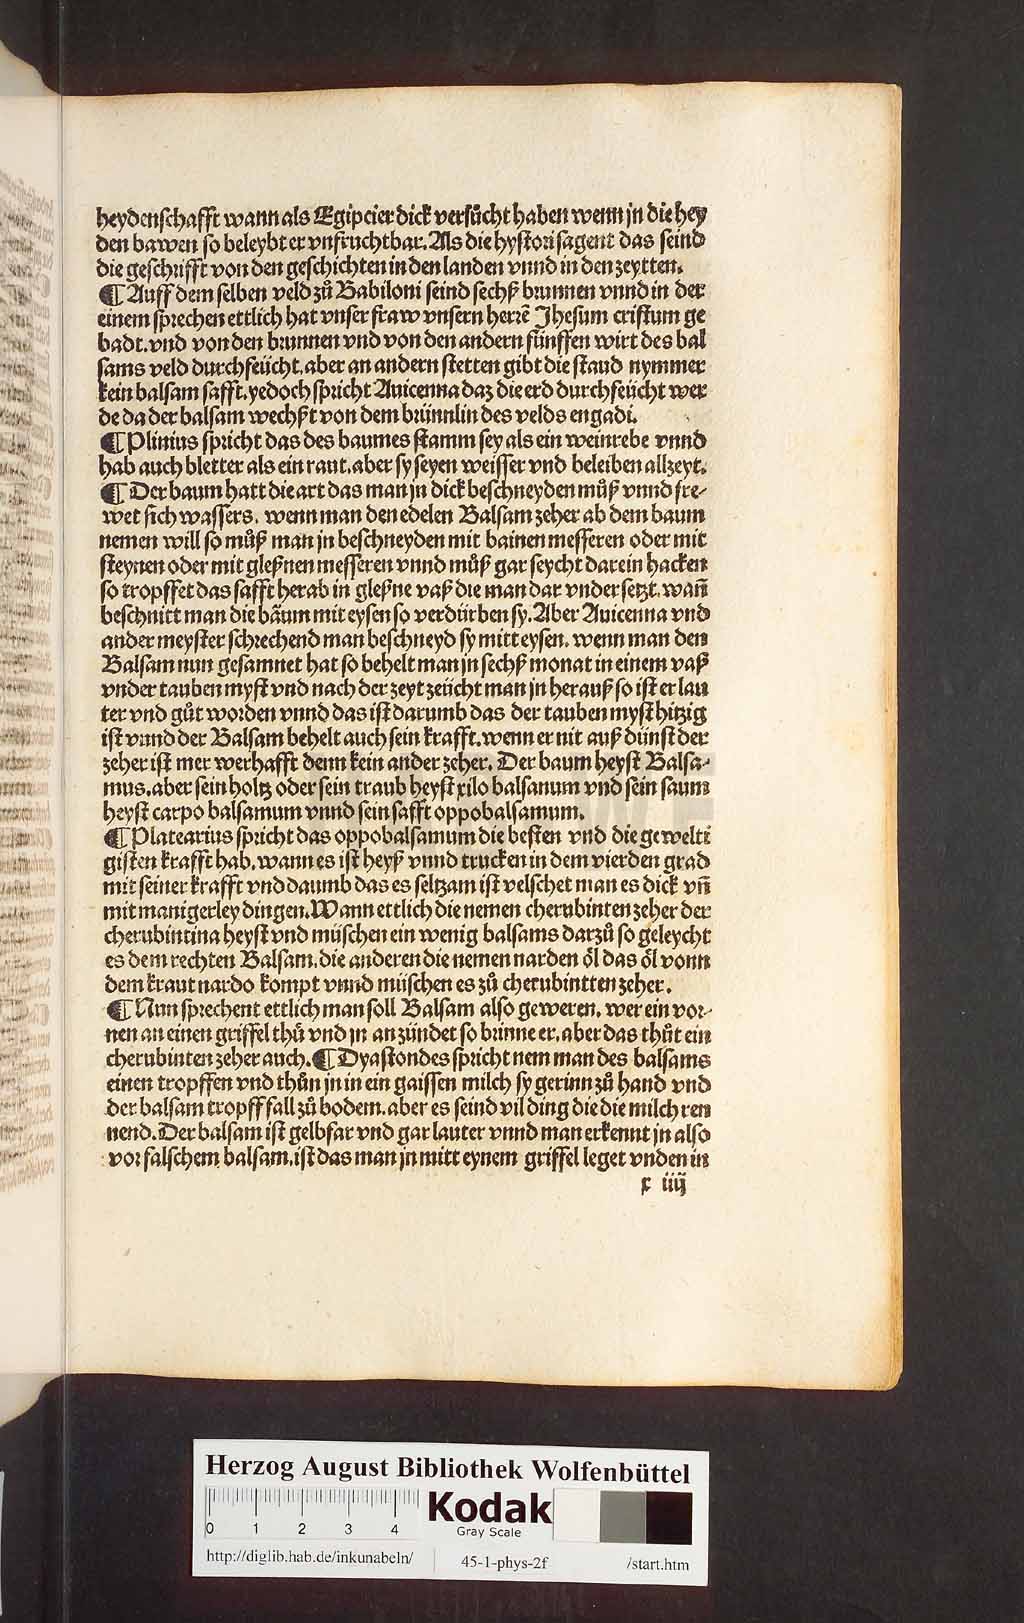 heydenschafft wann als Egipcier dick versůcht haben wenn jn die hey
den bawen so beleybt er vnfruchtbar. Als die hystori sagent das seind
die geschrifft von den geschichten in den landen vnnd in den zeytten.
¶ Auff dem selben veld zů Babiloni seind sechß brunnen vnnd in der
einem sprechen ettlich hat vnser fraw vnsern herrē Jhesum cristum ge
badt. vnd von den brunnen vnd von den andern fünffen wirt des bal
sams veld durchfeücht. aber an andern stetten gibt die staud nymmer
kein balsam safft. yedoch spricht Auicenna daz die erd durchfeücht wer
de da der balsam wechßt von dem brünnlin des velds engadi.
¶ Plinius spricht das des baumes stamm sey als ein weinrebe vnnd
hab auch bletter als ein raut. aber sy seyen weisser vnd beleiben allzeyt.
¶ Der baum hatt die art das man jn dick beschneyden můß vnnd fre-
wet sich wassers. wenn man den edelen Balsam zeher ab dem baum
nemen will so můß man jn beschneyden mit bainen messeren oder mit
steynen oder mit gleßnen messeren vnnd můß gar seycht darein hacken
so tropffet das safft herab in gleßne vaß die man dar vnder setzt. wañ
beschnitt man die bäum mit eysen so verdürben sy. Aber Auicenna vnd
ander meyster schrechend man beschneyd sy mitt eysen. wenn man den
Balsam nun gesamnet hat so behelt man jn sechß monat in einem vaß
vnder tauben myst vnd nach der zeyt zeücht man jn herauß so ist er lau
ter vnd gůt worden vnnd das ist darumb das der tauben myst hitzig
ist vnnd der Balsam behelt auch sein krafft. wenn er nit auß dünst der
zeher ist mer werhafft denn kein ander zeher. Der baum heyst Balsa-
mus. aber sein holtz oder sein traub heyst xilo balsanum vnd sein saum
heyst carpo balsamum vnnd sein safft oppobalsamum.
¶ Platearius spricht das oppobalsamum die besten vnd die geweltι
gisten krafft hab. wann es ist heyß vnnd trucken in dem vierden grad
mit seiner krafft vnd daumb das es seltzam ist velschet man es dick vñ
mit manigerley dingen. Wann ettlich die nemen cherubinten zeher der
cherubintina heyst vnd müschen ein wenig balsams darzů so geleycht
es dem rechten Balsam. die anderen die nemen narden öl das öl vonn
dem kraut nardo kompt vnnd müschen es zů cherubintten zeher.
¶ Nun sprechent ettlich man soll Balsam also geweren. wer ein vor-
nen an einen griffel thů vnd jn an zündet so brinne er. aber das thůt ein
cherubinten zeher auch. ¶ Dyastondes spricht nem man des balsams
einen tropffen vnd thůn jn in ein gaissen milch sy gerinn zů hand vnd
der balsam tropff fall zů bodem. aber es seind vil ding die die milch ren
nend. Der balsam ist gelbfar vnd gar lauter vnnd man erkennt jn also
vor falschem balsam. ist das man jn mitt eynem griffel leget vnden in
x iiij
Herzog August Bibliothek Wolfenbüttel
0 1 2 3 4
Kodak
Gray Scale
http://diglib.hab.de/inkunabeln/ 45-1-phys-2f /start.htm